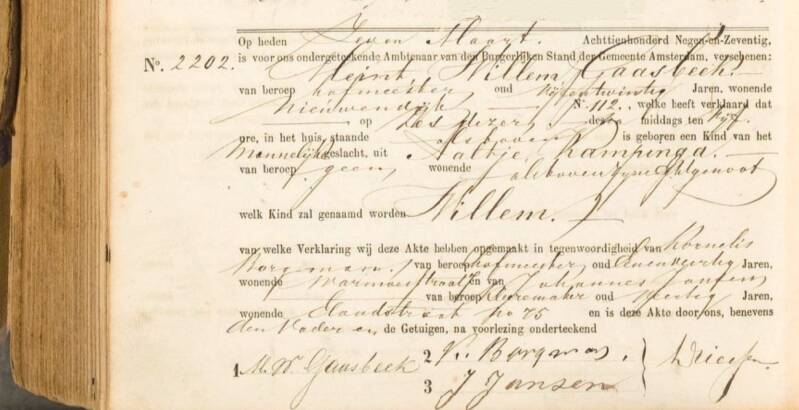 Op heden Zeven Maart. Achttienhonderd Negen-en-Zeventig,
No. 2202. is voor ons ondergeteekende Ambtenaar van den Burgerlijken Stand der Gemeente Amsterdam, verschenen:
Meint Willem Gaasbeek.
van beroep hofmeester oud Vijfentwintig Jaren, wonende
Nieuwendijk No. 112. welke heeft verklaard dat
op Zes dezer, des middags ten Vijf
ure, in het huis, staande alsboven is geboren een Kind van het
Mannelijke geslacht, uit Aaltje Kampinga.
van beroep geen, wonende alsboven zyne Echtgenoot
welk Kind zal genaamd worden Willem.
van welke Verklaring wij deze Akte hebben opgemaakt in tegenwoordigheid van Kornelis
Borgman, van beroep hofmeester, oud Eenenveertig Jaren,
wonende Warmoesstraat en van Johannes Jansen,
van beroep oud Veertig Jaren,
wonende Elandstraat no 75 en is deze Akte door ons, benevens
den Vader en de Getuigen, na voorlezing onderteekend
1 M. W. Gaasbeek 2 K. Borgman.
3 J Jansen